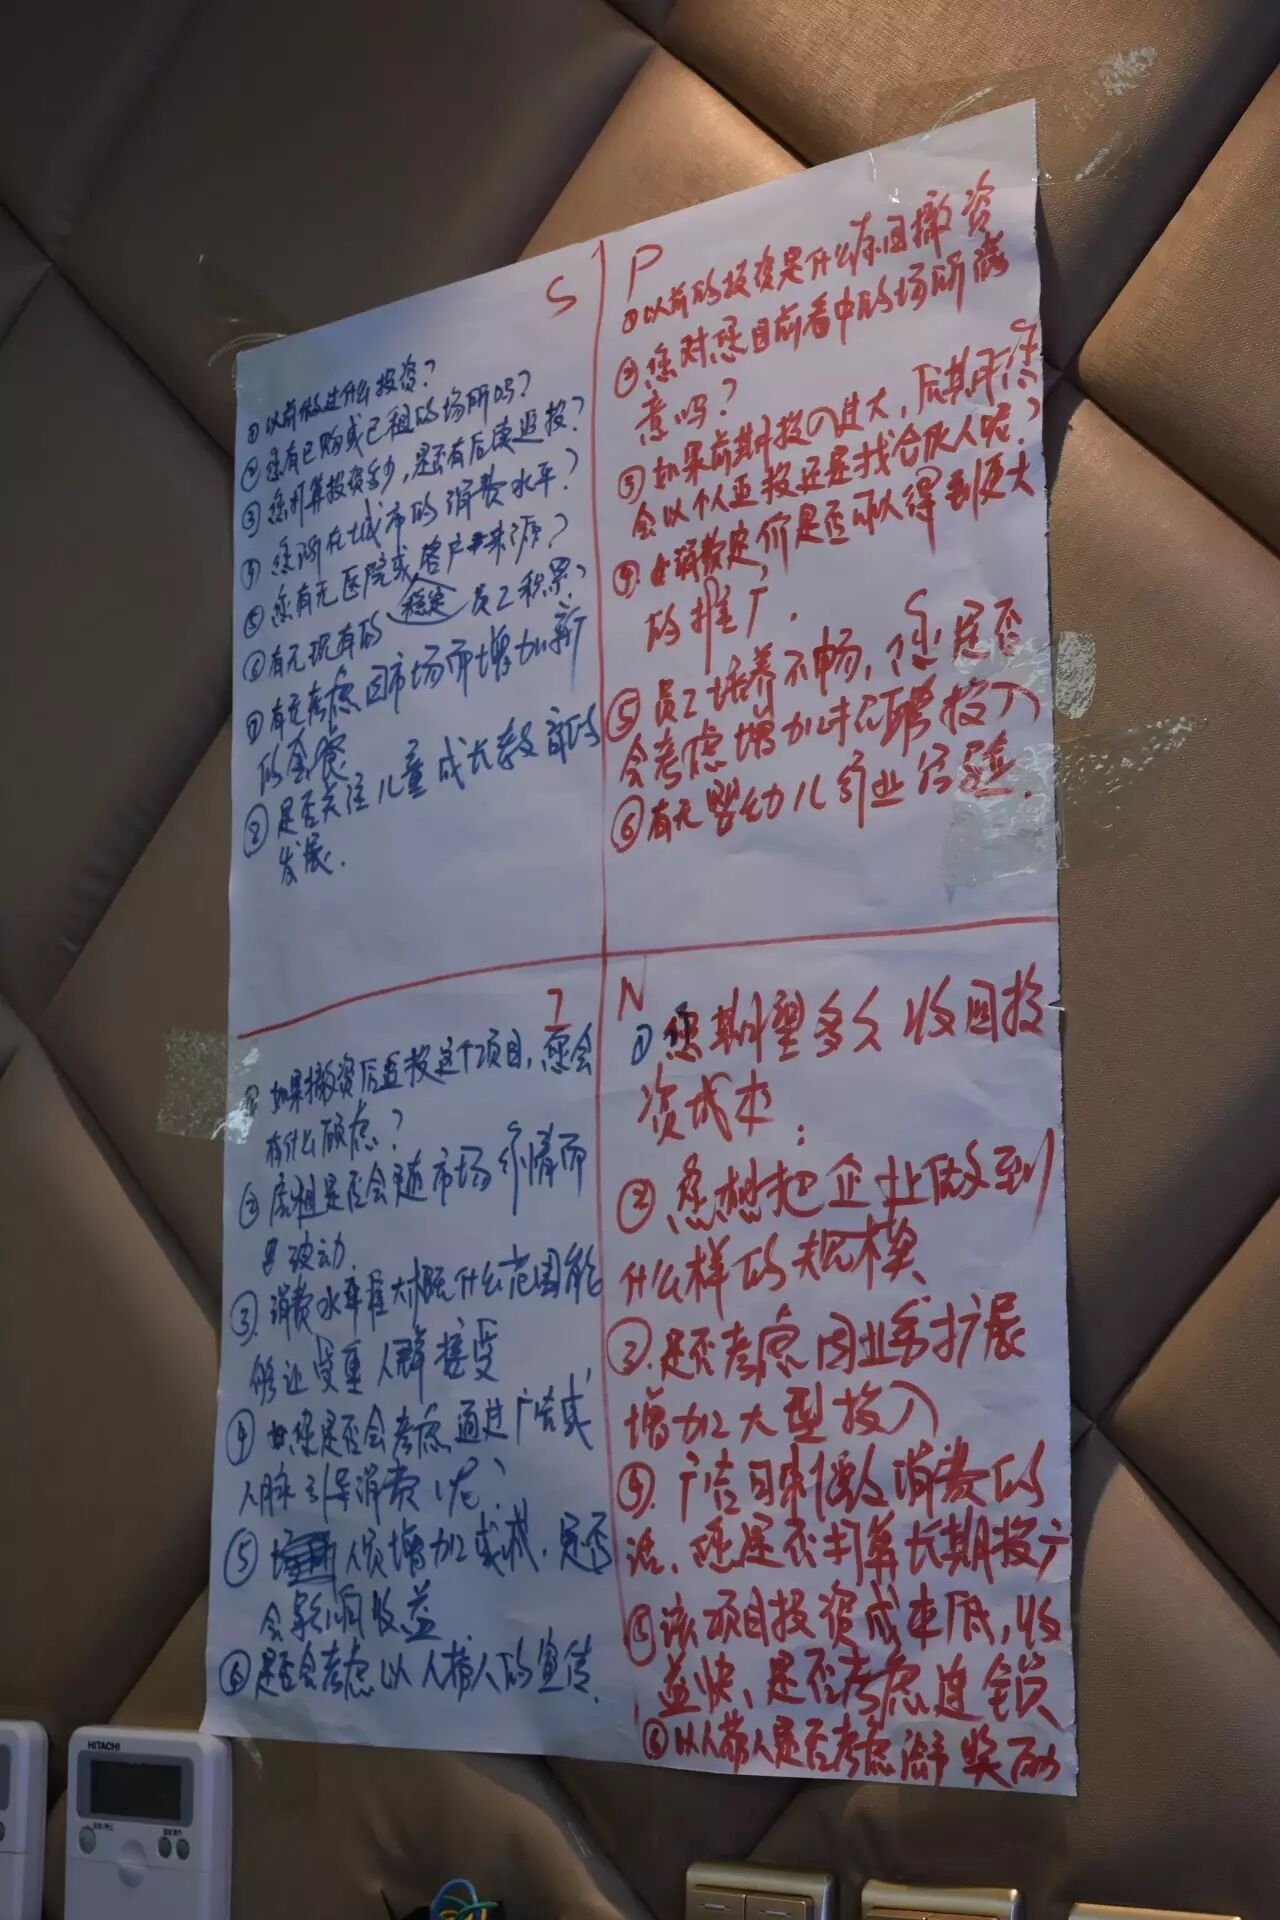 S
①以前做过什么投资?
②您有已购或已租的场所吗?
③您打算投资多少,是否有后续追投?
④您所在城市的消费水平?
⑤您有无医院或客户来源?
⑥有无现有的稳定员工积累?
⑦有无考虑因市场而增加新
的套餐
⑧是否关注儿童成长教育的
发展.
P
①以前的投资是什么原因撤资
②您对您目前看中的场所满
意吗?
③如果前期投入过大,后期您
会以个人追投还是找合伙人呢?
④消费定价是否可以得到更大
的推广.
⑤员工培养不畅,您是否
会考虑增加招聘投入
⑥有无婴幼儿行业经验.
I
①如果撤资后再投这个项目,您会
有什么顾虑?
②房租是否会随市场行情而
波动.
③消费水平大概什么范围能
够让受重人群接受
④您是否会考虑通过广告或
人脉引导消费呢?
⑤人员增加或减,是否
会影响收益.
⑥是否会考虑以人带人的宣传.
N
①您期望多久收回投
资成本:
②您想把企业做到
什么样的规模
③.是否考虑因业务扩展
增加大型投入
④.广告因刺激消费的
话,您是否打算长期投广
⑤该项目投资成本低,收
益快、是否考虑连锁
⑥以人带人是否考虑给予奖励
HITACHI